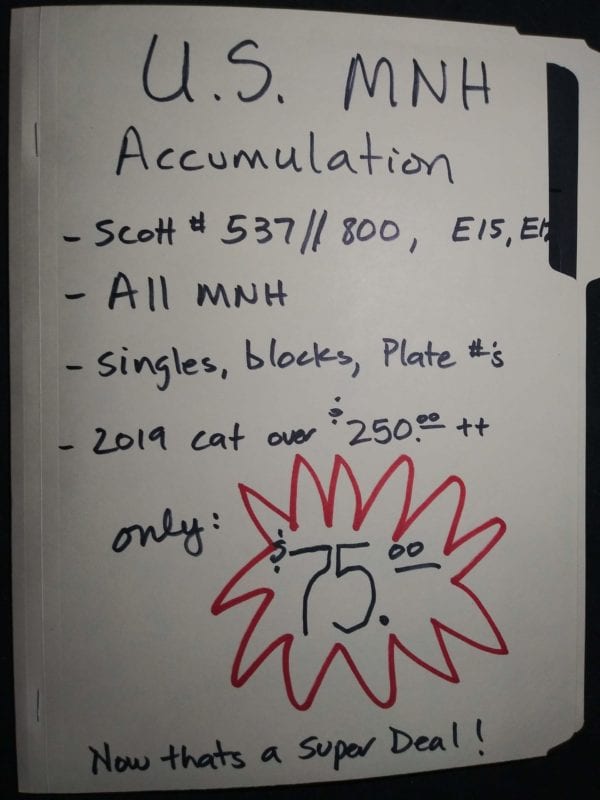 U.S. MNH
Accumulation
- Scott # 537// 800, E15,
- All MNH
- singles, blocks, Plate #'s
- 2019 cat over $250.00 ++
only: $75.00
Now thats a super Deal!